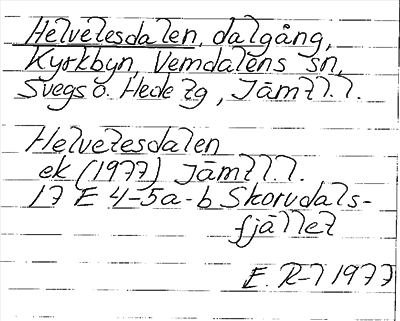 Helvetesdalen, dalgång,
Kyrkbyn, Vemdalens sn,
Svegs o. Hede tg, Jämtl.l.
Helvetesdalen
ek (1977) Jämtl.l.
17 E 4-5a-b Skorvdals-
fjället
E. R-l 1977